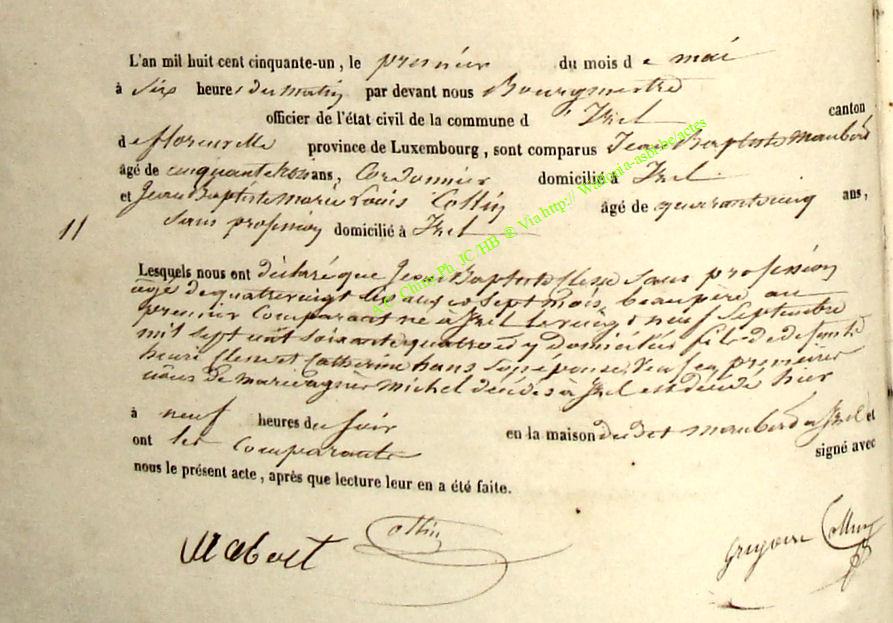 L'an mil huit cent cinquante-un, le premiér du mois d e mai
à six heures du matin par devant nous Bourgmestre
officier de l'état civil de la commune d' Izel canton
de florenville province de Luxembourg, sont comparus Jean Baptiste
âgé de ans, Cordonnier domicilié à Izel
et Jean Baptiste Marie Louis Collin âgé de quarante cinq ans,
11 sans profession domicilié à Izel
Lesquels nous ont déclaré que Jean Baptiste sans profession
agé de quatre vingt six ans sept mois, beaupère au
premier Comparant né à Izel le vingt neuf Septembre
mil sept cent soixante quatre y domicilié fils de defunts
henri et Catherine hans son épouse, veuf en premières
nôces de michel décédée à Izel est décédé hier
à neuf heures du soir en la maison dudit à Izel et
ont les comparants signé avec
nous le présent acte, après que lecture leur en a été faite.
A.C. Chiny Ph. JC/HB ® Via http:// Wallonia-asbl.be/actes
Collin
Grégoire Collin